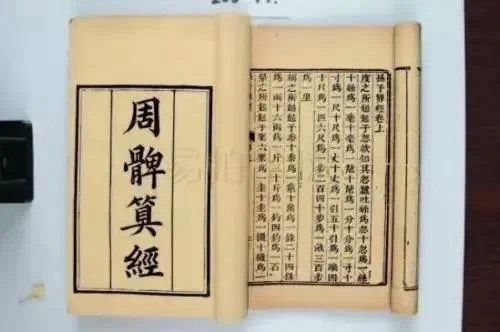 周髀算經
孫子算經卷上
度之所起起于忽欲知其忽蠶吐絲爲忽十忽爲一
十絲爲一毫十毫爲一釐十釐爲一分十分爲一寸十
寸爲一尺十尺爲一丈十丈爲一引五十引爲一
十尺爲一疋六尺爲一步二百四十步爲一畝三百步
爲一里
稱之所起起于黍十黍爲一絫十絫爲一銖二十四銖
爲一兩十六兩爲一斤三十斤爲一鈞四鈞爲一石
量之所起起于粟六粟爲一圭十圭爲一撮十撮爲一